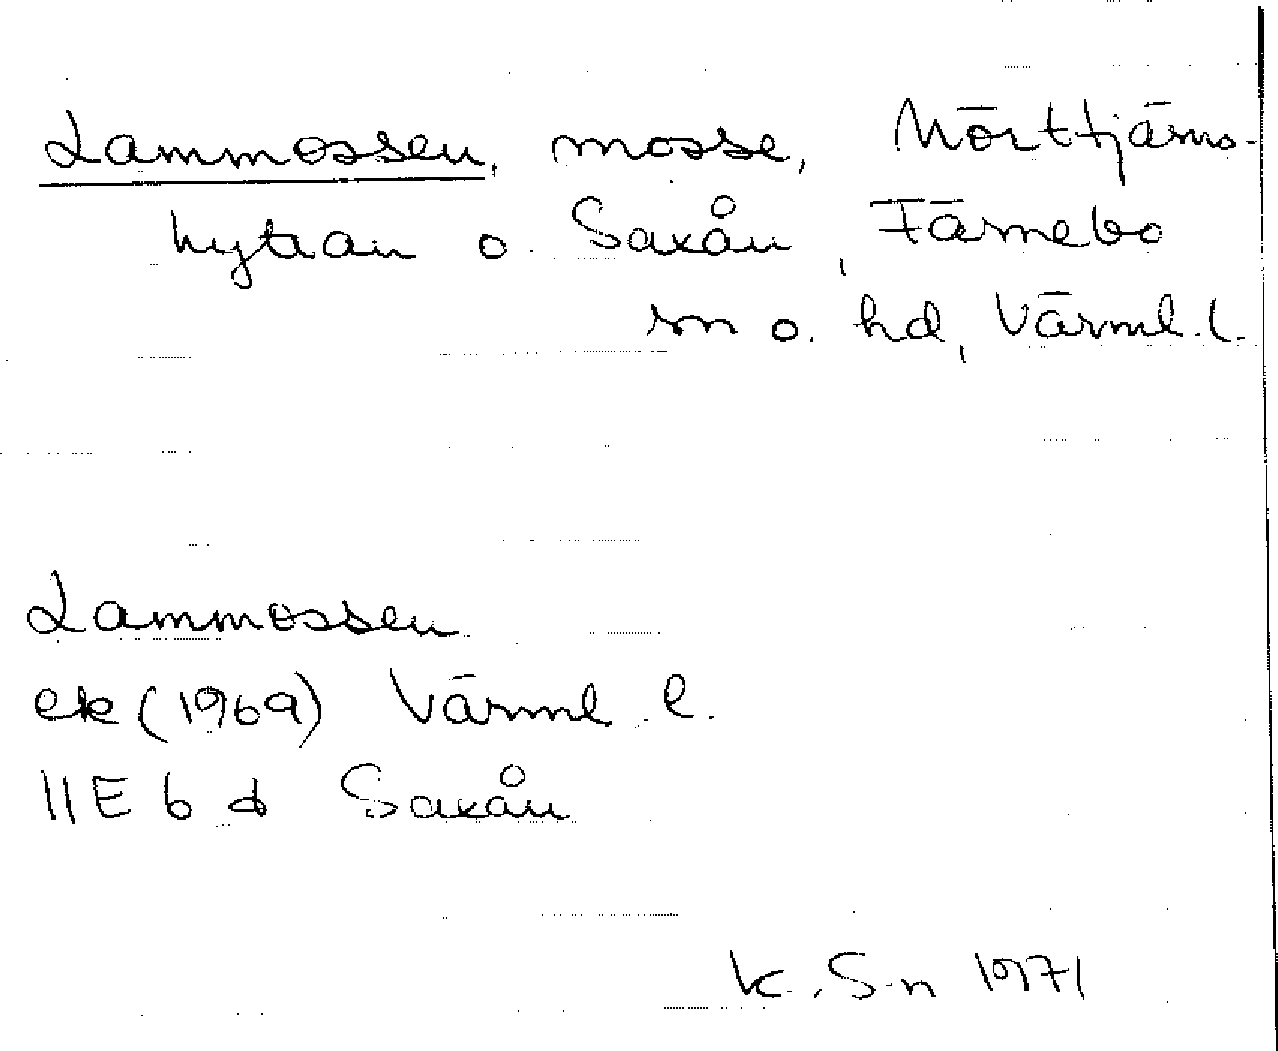 Lammossen, mosse, Mörttjärns-
hyttan o. Saxån, Färnebo
sn o. hd, Värml. l.
Lammossen
ek (1969) Värml. l.
11E 6 d Saxån
K. S-n 1971